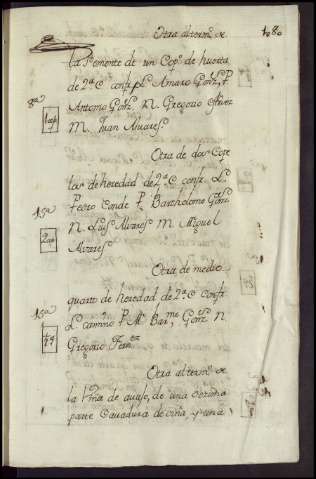 Otra al term.º de 1080
la Remonte de un Cop.º de huerta
de 2.ª C confr. L. Amaro Gonz.z P.
8.ª Antonio Gonz. N. Gregorio Alvrez
M. Juan Alvares.
Otra de dos Cope
los de heredad de 2.ª C confr. L.
15.ª Pedro Conde P. Bartholome Gonz.
N. Luis Alvares M. Miguel
Alvares.
Otra de medio
quarto de heredad de 2.ª C confr.
L. camino P. M. Bar.me Gonz. N
Gregorio Fern.ez
Otra al term.º de
la Viña de avajo, de una
parte Cavadura de viña, y una